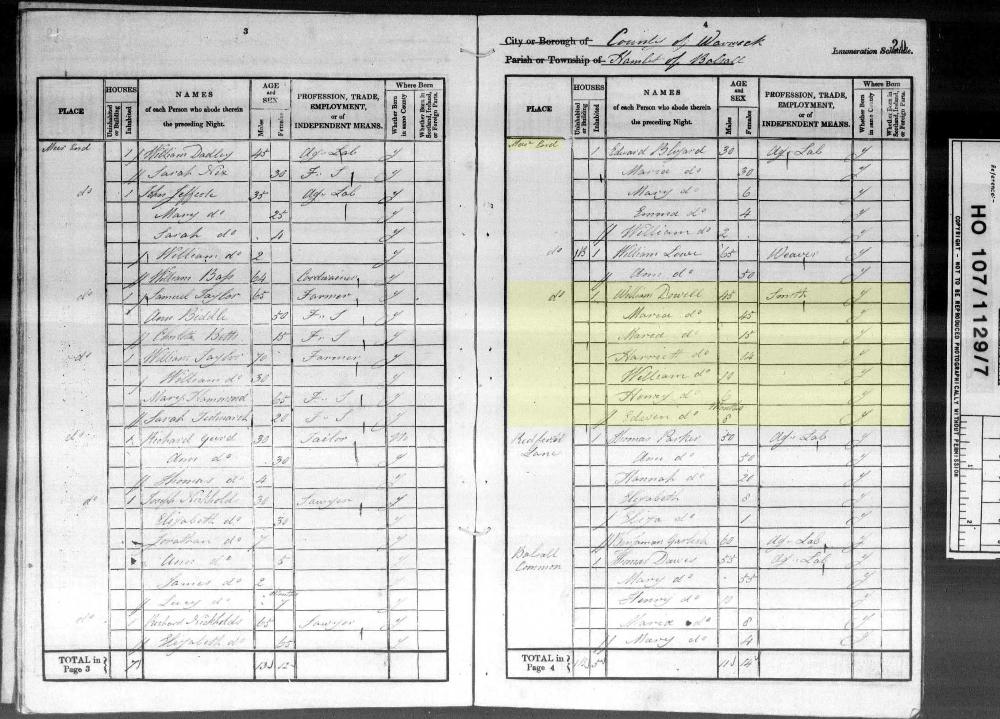 3
PLACE
HOUSES
Uninhabited or Building
Inhabited
NAMES
of each Person who abode therein
the preceding Night.
AGE
and
SEX
Males
Females
PROFESSION, TRADE,
EMPLOYMENT,
or of
INDEPENDENT MEANS.
Where Born
Whether Born in same County
Whether Born in Scotland, Ireland, or Foreign Parts.
1 William Dadley 45 Ag. Lab Y
Sarah Nix 30 F. S Y
do 1 35 Ag. Lab Y
Mary do 25 Y
Sarah do 4 Y
William do 2 Y
William 64 Cordwainer Y
do 1 Samuel Taylor 65 Farmer Y
Ann Biddle 50 F. S Y
15 F. S Y
do 1 William Taylor 70 Farmer Y
William do 30 Y
Mary Hammond 65 F. S Y
Sarah 20 F. S Y
do 1 Richard 30 Tailor
Ann do 30
Thomas do 4 Y
do 1 Joseph 30 Sawyer Y
Elizabeth do 30 Y
Jonathan do 7 Y
Ann do 5 Y
James do 2 Y
Lucy do Months 7 Y
do 1 Richard 65 Sawyer Y
Elizabeth do 65 Y
TOTAL in
Page 3
13 12
4
City or Borough of County of Warwick
Parish or Township of Hamlet of Balsall
Enumeration Schedule.
PLACE
HOUSES
Uninhabited or Building
Inhabited
NAMES
of each Person who abode therein
the preceding Night.
AGE
and
SEX
Males
Females
PROFESSION, TRADE,
EMPLOYMENT,
or of
INDEPENDENT MEANS.
Where Born
Whether Born in same County
Whether Born in Scotland, Ireland, or Foreign Parts.
1 Edward 30 Ag. Lab Y
Maria do 30 Y
Mary do 6 Y
Emma do 4 Y
William do 2 Y
do 1B 1 William 65 Weaver Y
Ann do 50 Y
do 1 William Dowell 45 Smith Y
Maria do 45 Y
Maria do 15 Y
Harriett do 14 Y
William do 10 Y
Henry do 6 Y
Edwin do Months 8 Y
Lane 1 Thomas Parker 50 Ag. Lab Y
Ann do 50 Y
Hannah do 20 Y
Elizabeth 8 Y
Eliza do 1 Y
Benjamin 60 Ag. Lab Y
Balsall
Common
1 Thomas Dawes 55 Ag. Lab Y
Mary do 55 Y
Henry do Y
Maria do 8 Y
Mary do 4 Y
TOTAL in
Page 4
1B 5 11 14
Reference:-
HO 107/1129/7
COPYRIGHT - NOT TO BE REPRODUCED PHOTOGRAPHICALLY WITHOUT PERMISSION
1
2